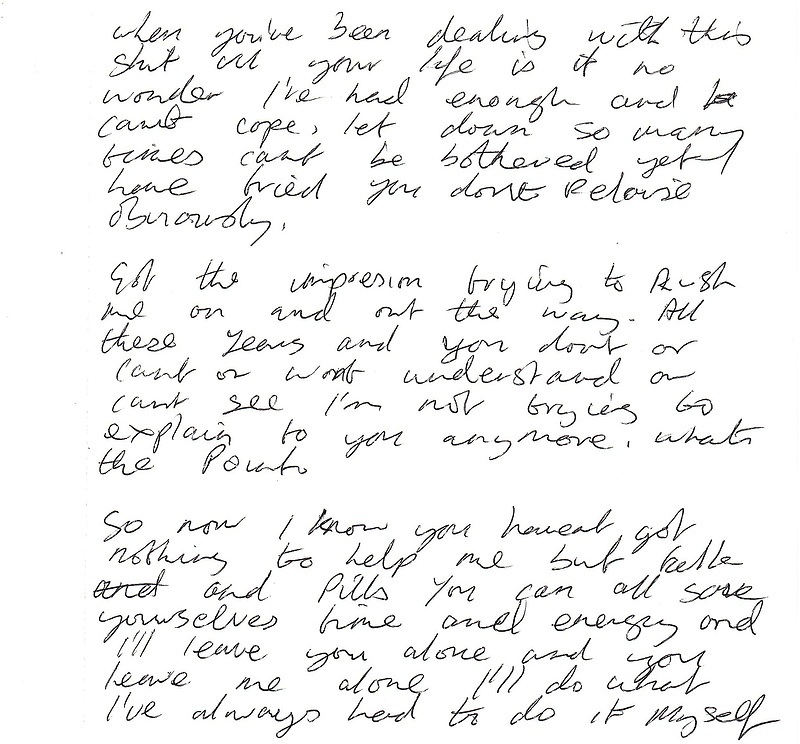 when you've been dealing with this
shit all your life is it no
wonder I've had enough and
cant cope, let down so many
times cant be bothered yet I
have tried you dont
obviously.
Got the impresion trying to Push
me on and out the way. All
these years and you dont or
cant or wont understand or
cant see I'm not trying to
explain to you anymore. whats
the Point
So now I know you havent got
nothing to help me but
and and Pills you can all save
yourselves time and energy and
I'll leave you alone and you
leave me alone I'll do what
I've always had to do it myself